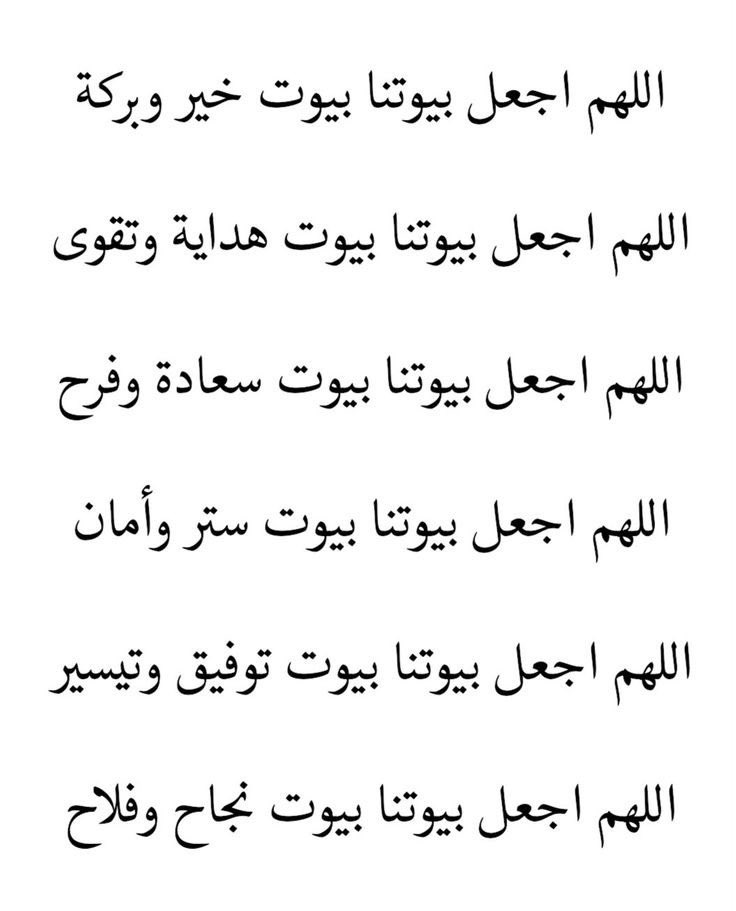 اللهم اجعل بيوتنا بيوت خير وبركة
اللهم اجعل بيوتنا بيوت هداية وتقوى
اللهم اجعل بيوتنا بيوت سعادة وفرح
اللهم اجعل بيوتنا بيوت ستر وأمان
اللهم اجعل بيوتنا بيوت توفيق وتيسير
اللهم اجعل بيوتنا بيوت نجاح وفلاح